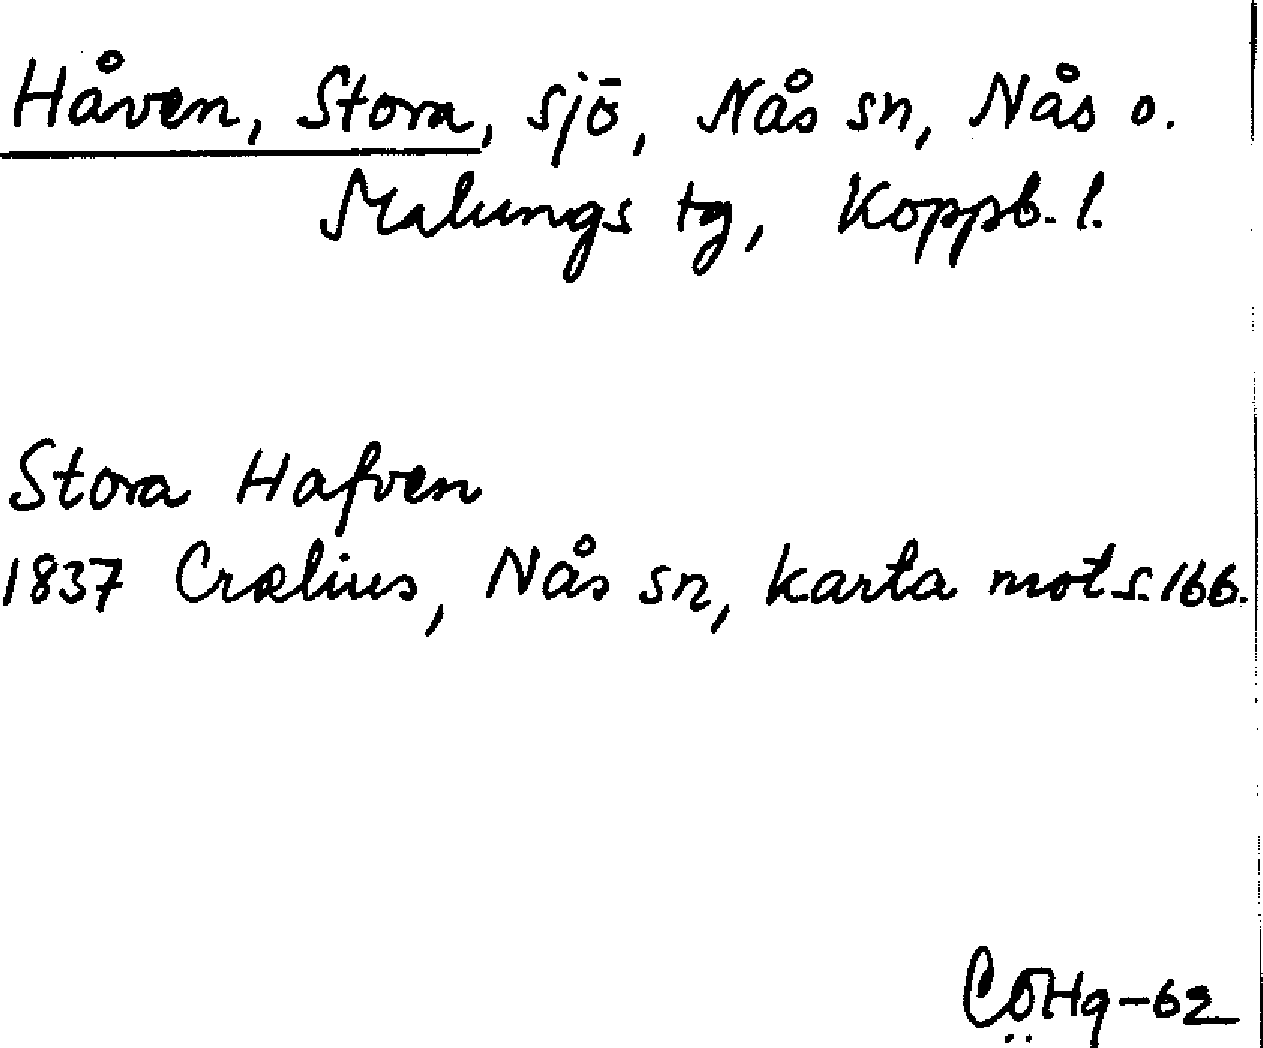 Håven, Stora, sjö, Nås sn, Nås o.
Malungs tg, Koppb. l.
Stora Hafven
1837 Crælius, Nås sn, karta mot s. 166.
CÖHg-62